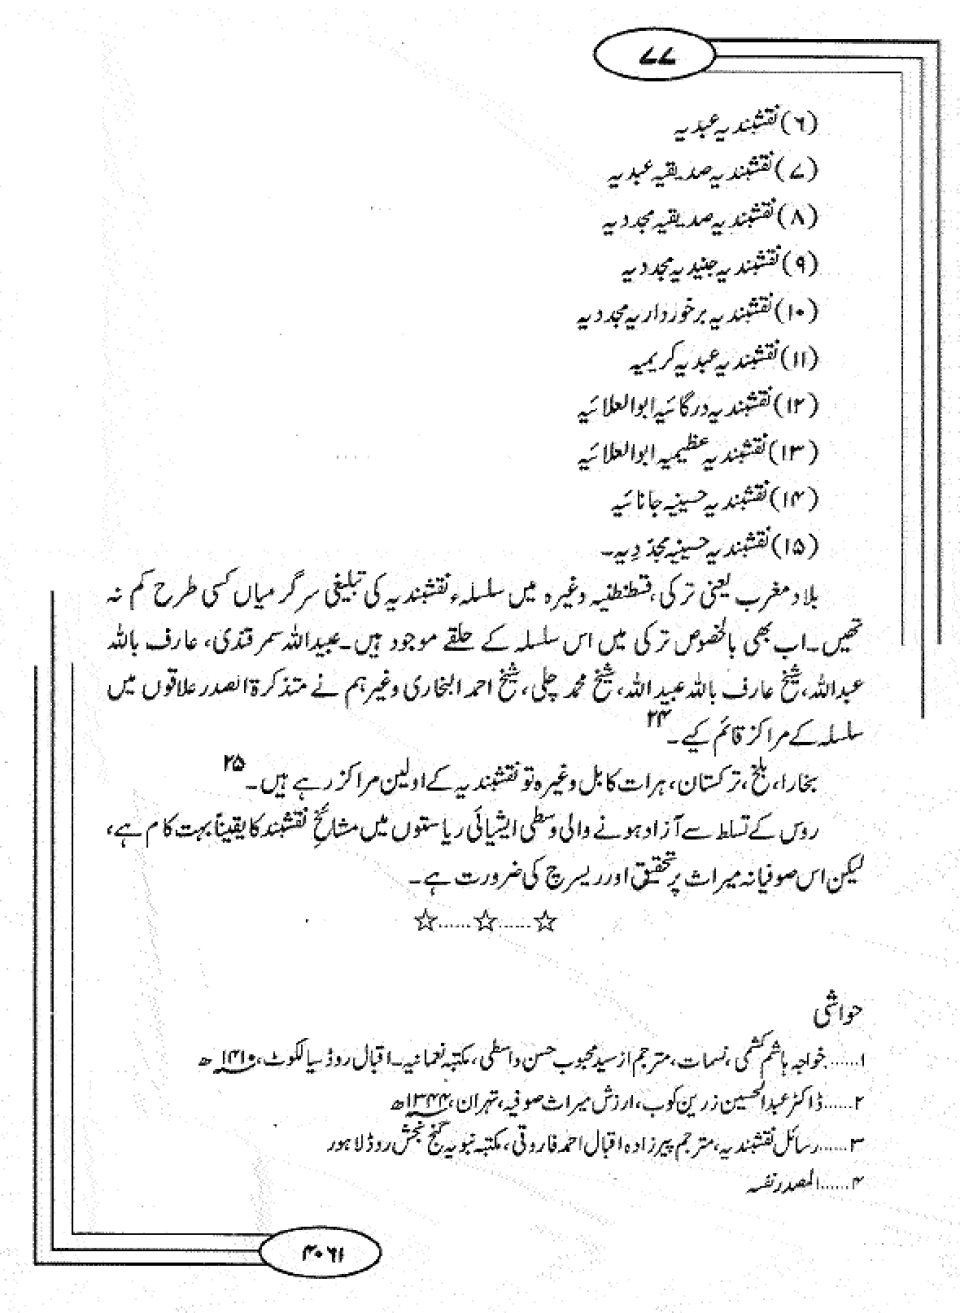 ۷۷
(۶) نقشبندیہ عبدیہ
(۷) نقشبندیہ صدیقیہ عبدیہ
(۸) نقشبندیہ صدیقیہ مجددیہ
(۹) نقشبندیہ جنیدیہ مجددیہ
(۱۰) نقشبندیہ برخورداریہ مجددیہ
(۱۱) نقشبندیہ عبدیہ کریمیہ
(۱۲) نقشبندیہ درگائیہ ابوالعلائیہ
(۱۳) نقشبندیہ عظیمیہ ابوالعلائیہ
(۱۴) نقشبندیہ حسینیہ جانائیہ
(۱۵) نقشبندیہ حسینیہ مجدّدِیہ۔
بلاد مغرب یعنی ترکی، قسطنطنیہ وغیرہ میں سلسلہء نقشبندیہ کی تبلیغی سرگرمیاں کسی طرح کم نہ
تھیں۔ اب بھی بالخصوص ترکی میں اس سلسلہ کے حلقے موجود ہیں۔ عبیداللہ سمرقندی، عارف باللہ
عبداللہ، شیخ عارف باللہ عبیداللہ، شیخ محمد چلپی، شیخ احمد البخاری وغیرہم نے متذکرۃ الصدر علاقوں میں
سلسلہ کے مراکز قائم کیے۔ ۲۴
بخارا، بلخ، ترکستان، ہرات کابل وغیرہ تو نقشبندیہ کے اولین مراکز رہے ہیں۔ ۲۵
روس کے تسلط سے آزاد ہونے والی وسطی ایشیائی ریاستوں میں مشائخِ نقشبند کا یقیناً بہت کام ہے،
لیکن اس صوفیانہ میراث پر تحقیق اور ریسرچ کی ضرورت ہے۔
☆......☆......☆
حواشی
۱......خواجہ ہاشم کشمی، نسمات، مترجم از سید محبوب حسن واسطی، مکتبہ نعمانیہ۔ اقبال روڈ سیالکوٹ، ۱۴۱۰ھ
۲......ڈاکٹر عبدالحسین زرین کوب، ارزش میراث صوفیہ، تہران، ۱۳۴۴ھ
۳......رسائل نقشبندیہ، مترجم پیرزادہ اقبال احمد فاروقی، مکتبہ نبویہ گنج بخش روڈ لاہور
۴......المصدر نفسہ